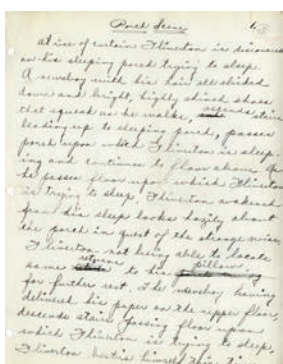 Porch Scene
At rise of curtain Fliverton is discovered
on his sleeping porch trying to sleep.
A newsboy with his hair all slicked
down and bright, highly shined shoes
that squeak as he walks, ascends stairs
leading up to sleeping porch, passes
porch upon which Fliverton is sleep-
ing and continues to floor above. As
he passes floor upon which Fliverton
is trying to sleep, Fliverton awakened
from his sleep looks hazily about
the porch in quest of the strange noise,
Fliverton not being able to locate
same returns to his pillow
for further rest. The newsboy having
delivered his paper on the upper floor,
descends stairs passing floor upon
which Fliverton is trying to sleep,
Fliverton himself this time